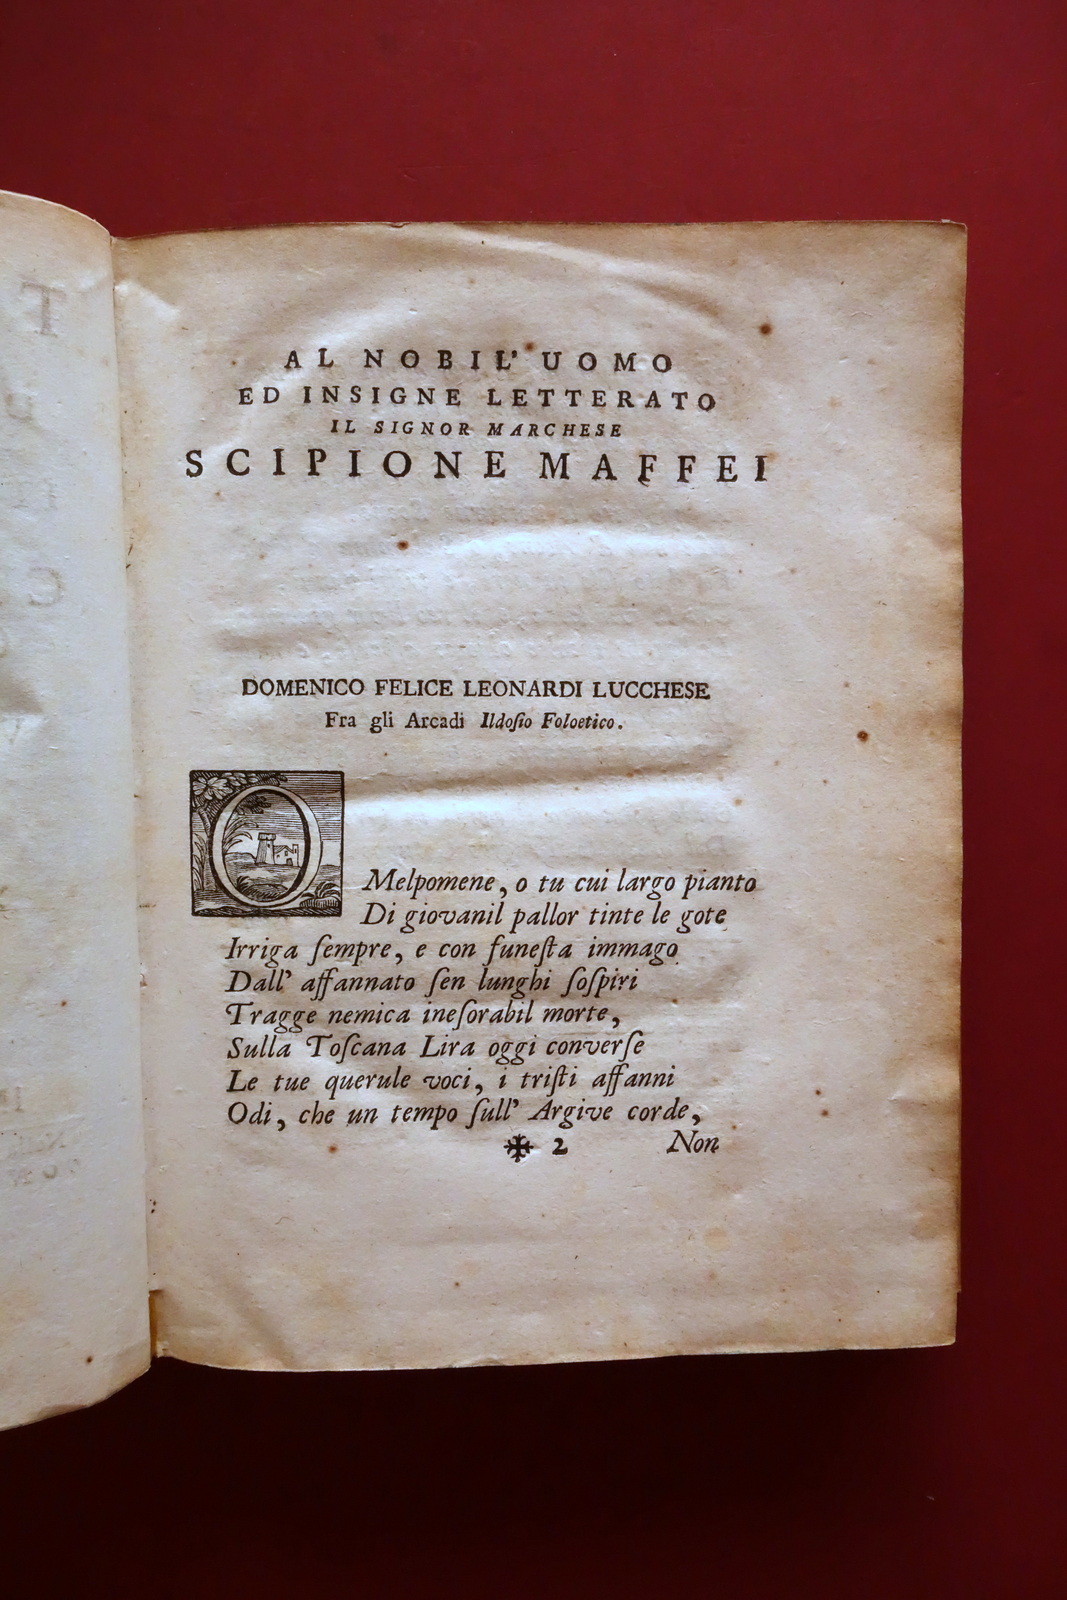 AL NOBIL' UOMO
ED INSIGNE LETTERATO
IL SIGNOR MARCHESE
SCIPIONE MAFFEI
DOMENICO FELICE LEONARDI LUCCHESE
Fra gli Arcadi Ildoſio Foloetico.
O Melpomene, o tu cui largo pianto
Di giovanil pallor tinte le gote
Irriga ſempre, e con funeſta immago
Dall' affannato ſen lunghi ſoſpiri
Tragge nemica ineſorabil morte,
Sulla Toſcana Lira oggi converſe
Le tue querule voci, i triſti affanni
Odi, che un tempo ſull' Argive corde,
✠ 2 Non